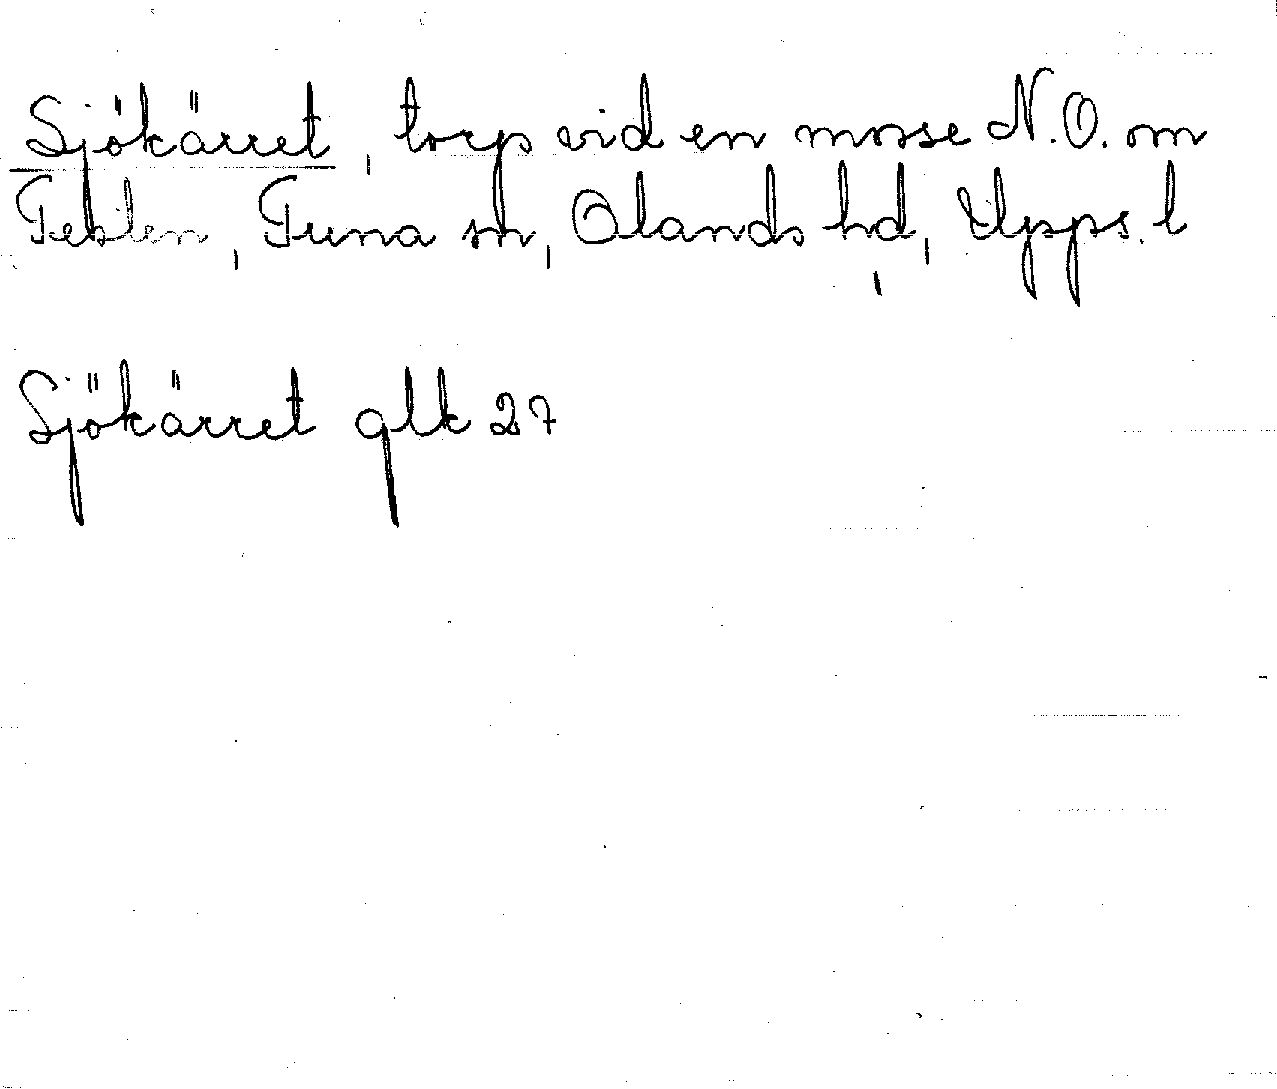 Sjökärret, torp vid en mosse N.O. om
Teblen, Tuna sn, Olands hd, Upps. l
Sjökärret glk 27